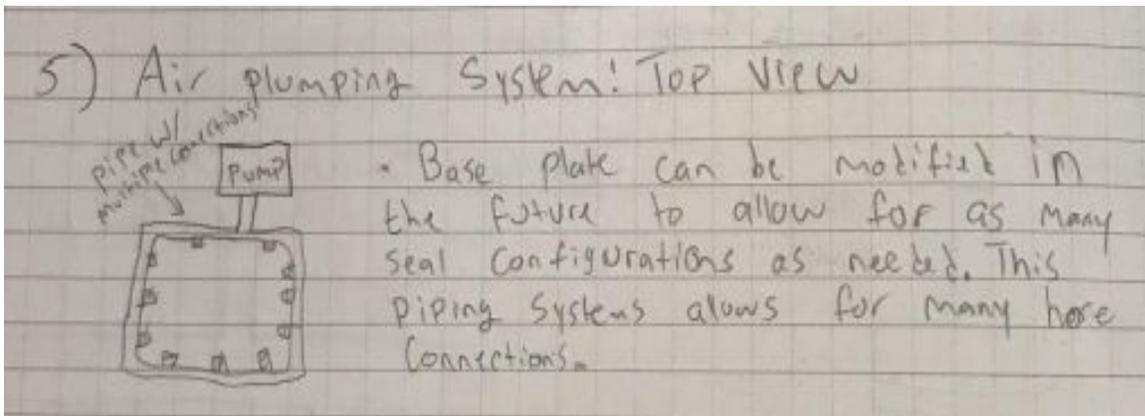 5) Air plumping System: Top View
pipe w/
multiple conections
Pump
• Base Plate can be modified in
the future to allow for as many
seal configurations as needed. This
piping systems alows for many hose
Connections.